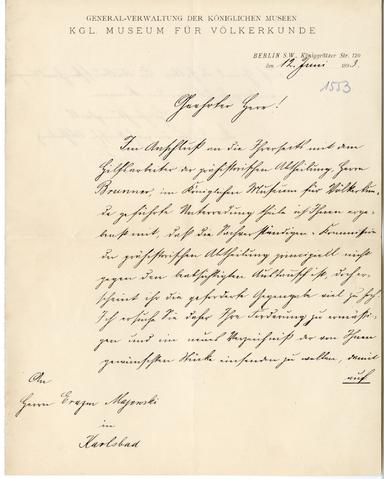 GENERAL-VERWALTUNG DER KÖNIGLICHEN MUSEEN
KGL. MUSEUM FÜR VÖLKERKUNDE
BERLIN S.W., Königgrätzer Str. 120
den 12 Juni 1893.
1553
Geehrter Herr!
Im Anschluß an die Ihrerseits mit dem
Hilfsarbeiter der prähistorischen Abtheilung, Herrn
Brunner, im Königlichen Museum für Völkerkun-
de geführte Unterredung theile ich Ihnen ergeb-
enst mit, daß die Sachverständigen-Kommission
der prähistorischen Abtheilung principiell nicht
gegen den beabsichtigten Austausch ist, doch er-
scheint ihr die geforderte Gegengabe viel zu hoch.
Ich ersuche Sie daher Ihre Forderung zu ermäßi-
gen und ein neues Verzeichniß der von Ihnen
gewünschten Stücke einsenden zu wollen, damit
auf
An
Herrn Erazm Majewski
in
Karlsbad